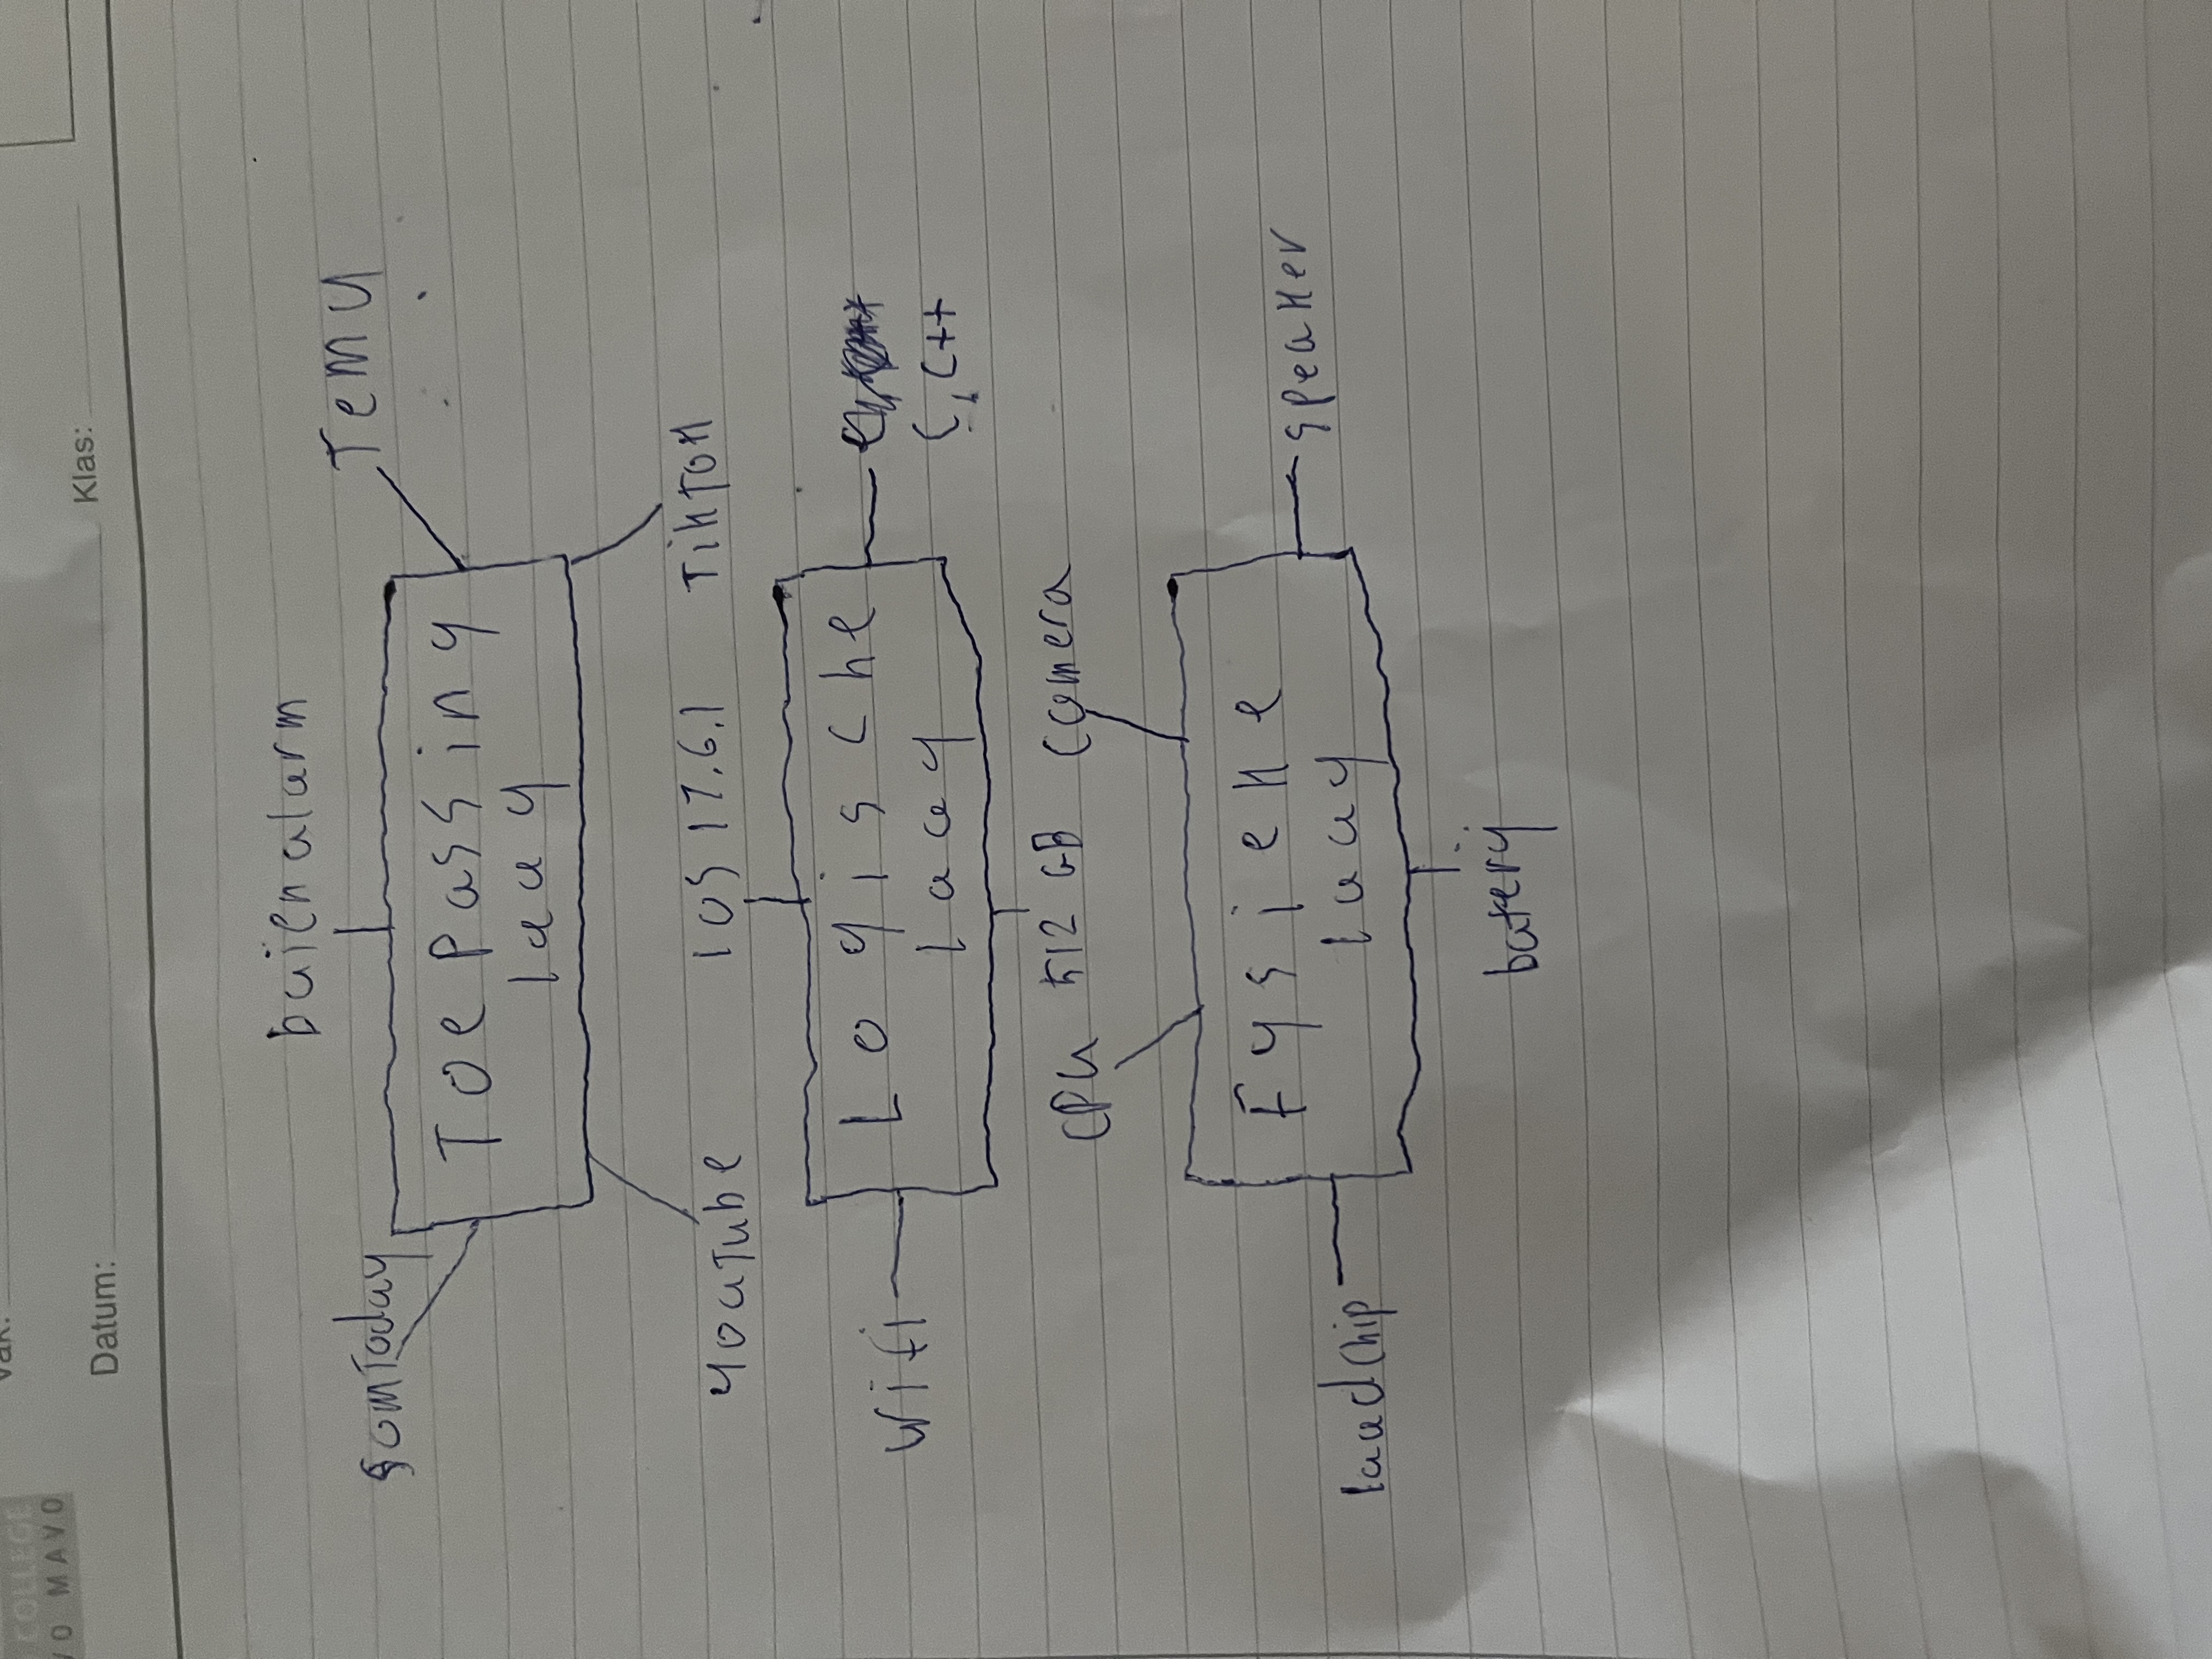 COLLEGE
MAVO
Datum: Klas:
buienalarm
somToday
Temu
Toepassing
laag
YouTube
TikTok
ios 17.6.1
Wifi
Logische
laag
C, C++
512 GB
CPU
camera
Fysieke
laag
speaker
laadchip
baterij